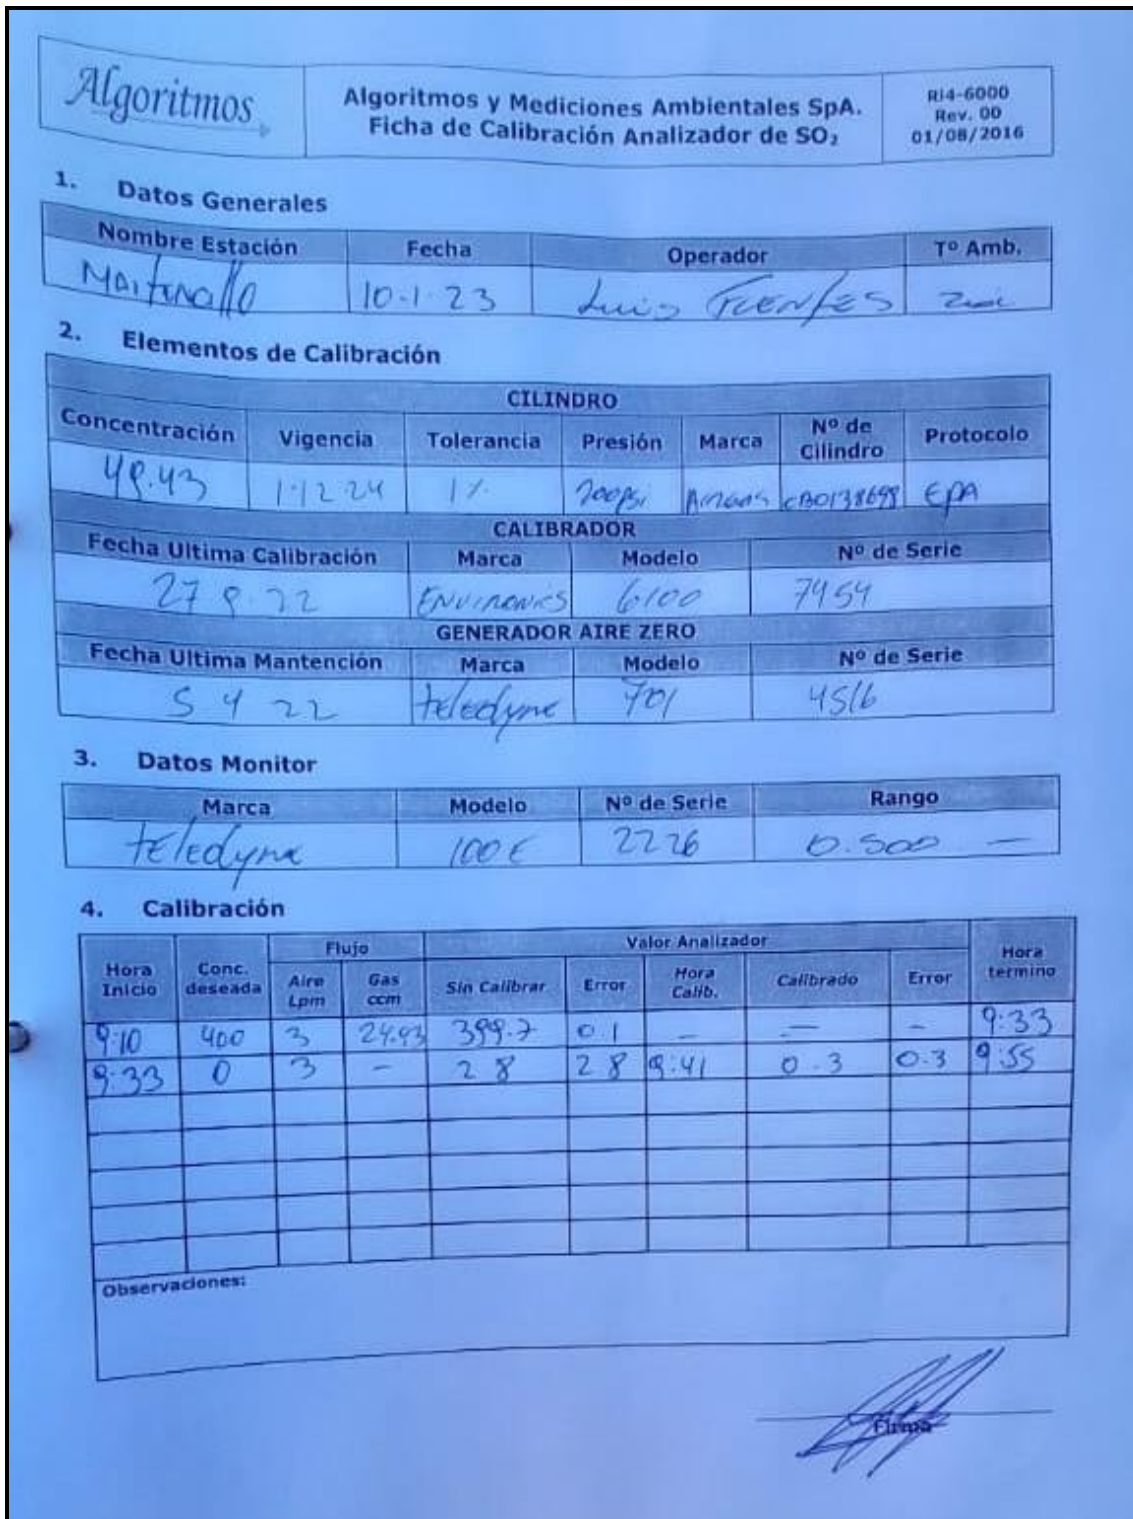 Algoritmos
Algoritmos y Mediciones Ambientales SpA.
Ficha de Calibración Analizador de SO₂
RI4-6000
Rev. 00
01/08/2016
1. Datos Generales
Nombre Estación Fecha Operador Tº Amb.
10.1.23 Luis FUENTES
2. Elementos de Calibración
CILINDRO
Concentración Vigencia Tolerancia Presión Marca Nº de Cilindro Protocolo
49.43 1.12.24 1% 700psi AIRGAS CB0138698 EPA
CALIBRADOR
Fecha Ultima Calibración Marca Modelo Nº de Serie
27 9.22 ENVIRONICS 6100 7454
GENERADOR AIRE ZERO
Fecha Ultima Mantención Marca Modelo Nº de Serie
5 4 22 teledyne 701 4516
3. Datos Monitor
Marca Modelo Nº de Serie Rango
teledyne 100E 2226 0.500 —
4. Calibración
Flujo Valor Analizador
Hora Inicio Conc. deseada Aire Lpm Gas ccm Sin Calibrar Error Hora Calib. Calibrado Error Hora termino
9:10 400 3 24.43 399.7 0.1 — — — 9:33
9:33 0 3 — 2 8 2 8 9:41 0.3 0.3 9:55
Observaciones:
Firma